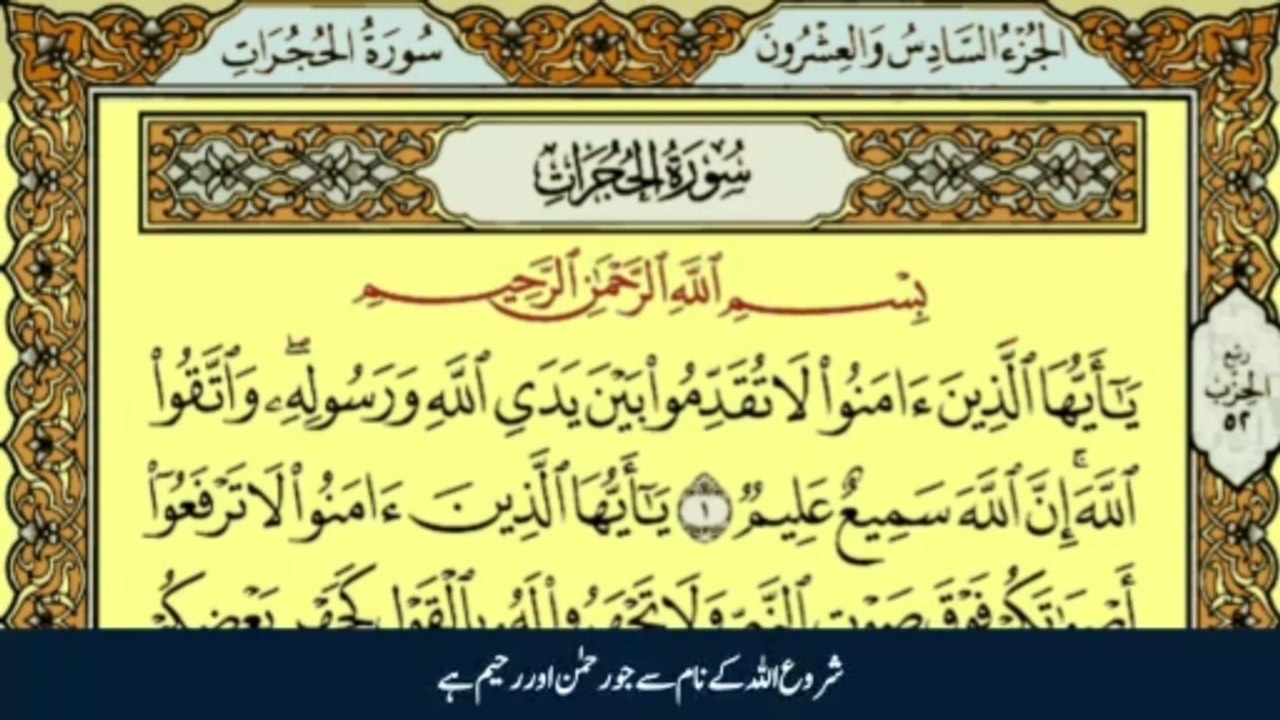 الجزء السادس والعشرون
سورة الحجرات
سُورَةُ الحُجُرَاتِ
بِسْمِ ٱللَّهِ ٱلرَّحْمَٰنِ ٱلرَّحِيمِ
يَٰٓأَيُّهَا ٱلَّذِينَ ءَامَنُوا۟ لَا تُقَدِّمُوا۟ بَيْنَ يَدَىِ ٱللَّهِ وَرَسُولِهِۦ ۖ وَٱتَّقُوا۟
ٱللَّهَ ۚ إِنَّ ٱللَّهَ سَمِيعٌ عَلِيمٌ ١ يَٰٓأَيُّهَا ٱلَّذِينَ ءَامَنُوا۟ لَا تَرْفَعُوٓا۟
أَصْوَٰتَكُمْ فَوْقَ صَوْتِ ٱلنَّبِىِّ وَلَا تَجْهَرُوا۟ لَهُۥ بِٱلْقَوْلِ كَجَهْرِ بَعْضِكُمْ
ربع
الحزب
٥٢
شروع اللہ کے نام سے جو رحمٰن اور رحیم ہے